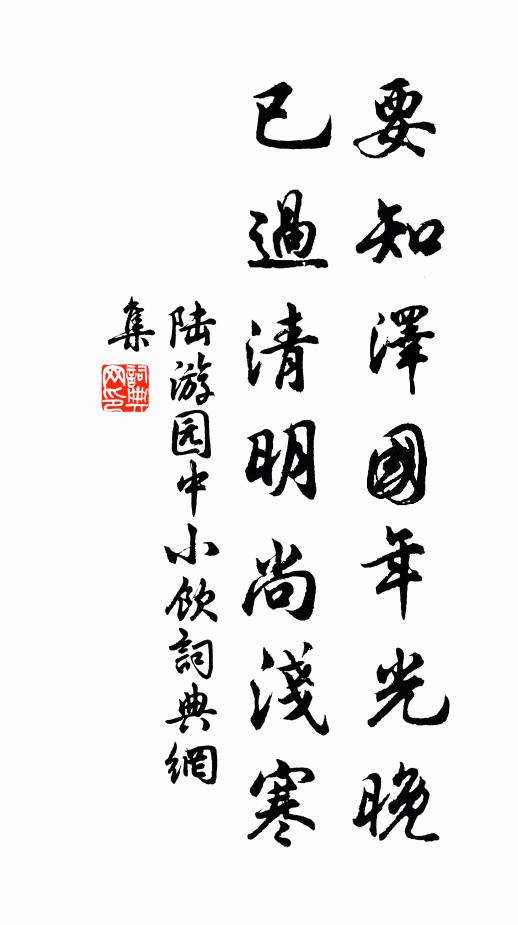 要知澤國年光晚
已過清明尚淺寒
陆游园中小飲詞典網
集
詞典
网印